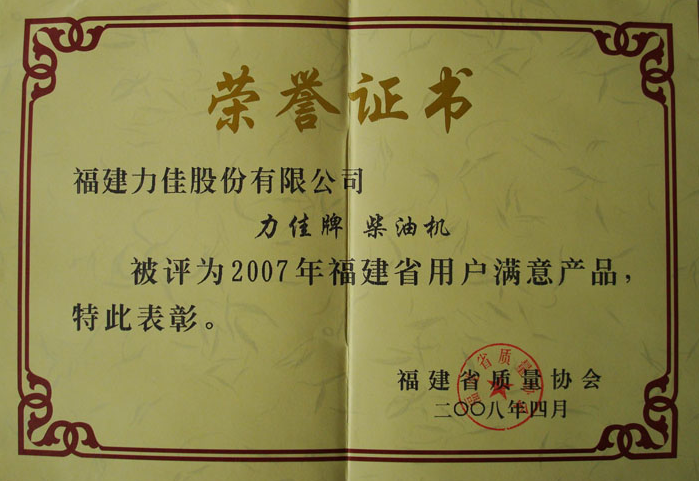 荣誉证书
福建力佳股份有限公司
力佳牌 柴油机
被评为2007年福建省用户满意产品，
特此表彰。
福建省质量协会
二〇〇八年四月